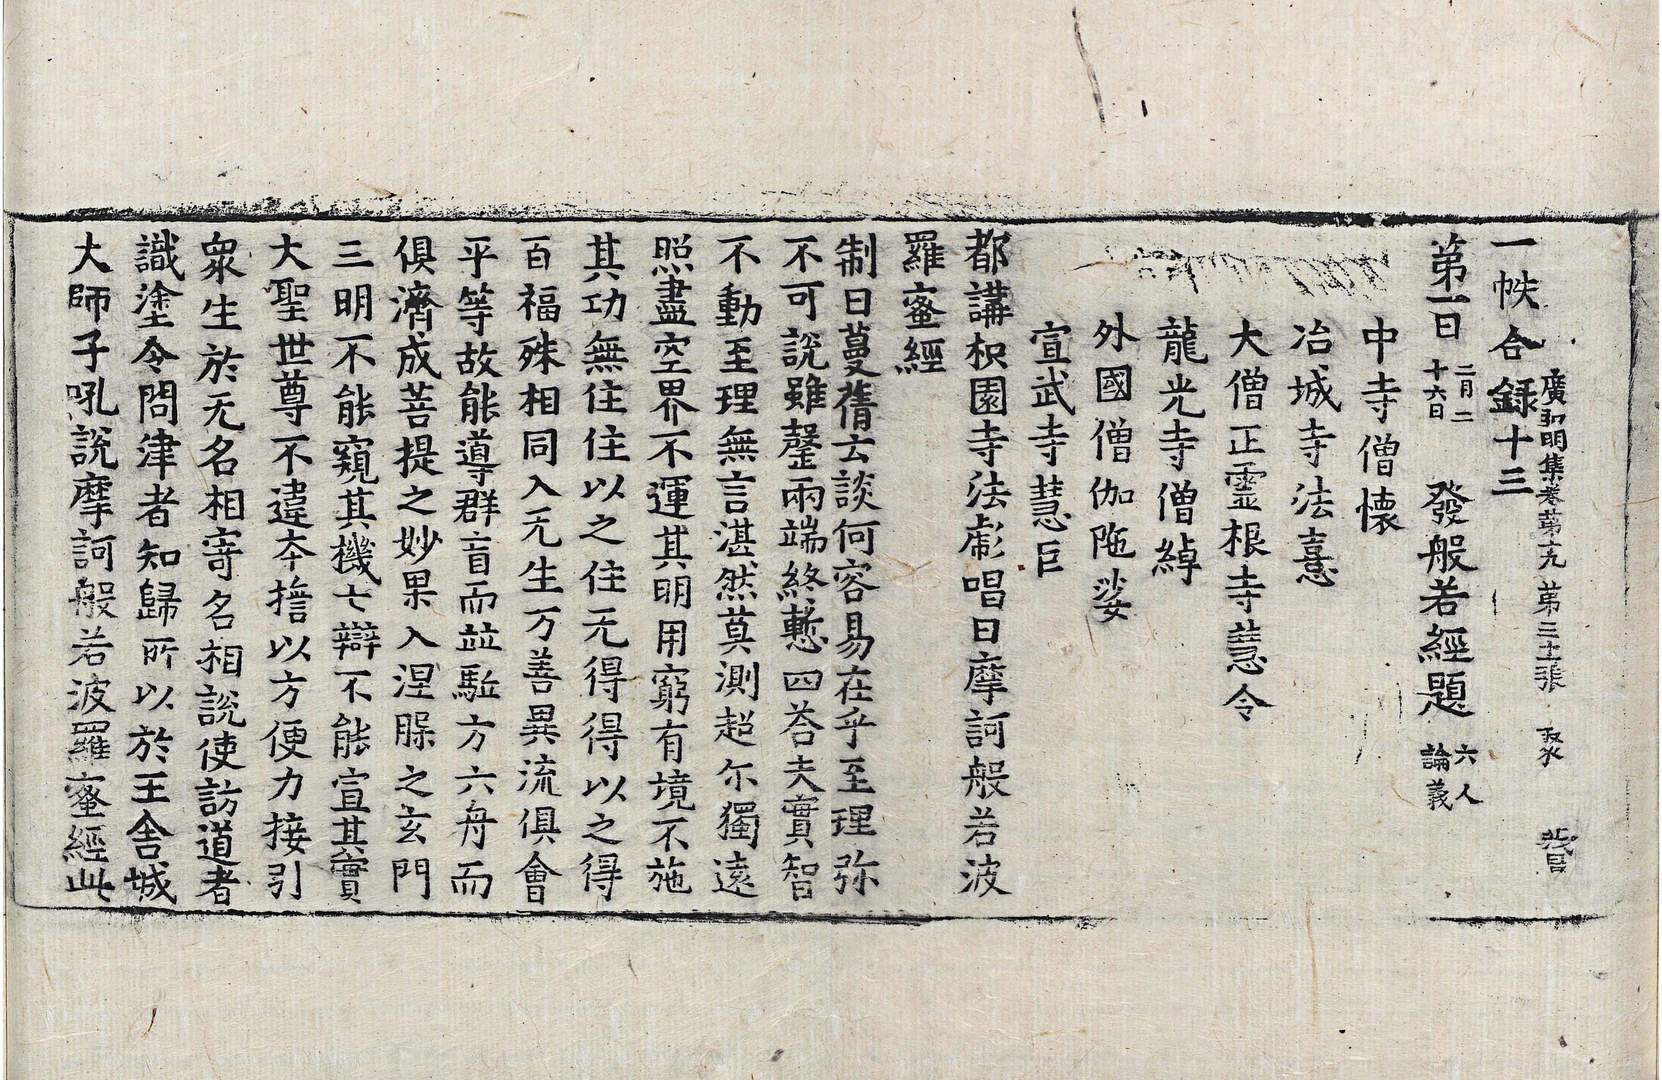 廣弘明集卷第十九 第三十張 聚
一帙合錄十三
第一日 二月二十六日 發般若經題 六人論義
中寺僧懷
冶城寺法憙
大僧正霊根寺慧令
龍光寺僧綽
外國僧伽陁娑
宣武寺慧巨
都講枳園寺法彪唱曰摩訶般若波
羅蜜經
制曰蔓蒨云談何容易在乎至理弥
不可說雖罄兩端終慙四荅夫實智
不動至理無言湛然莫測超尒獨遠
照盡空界不運其明用窮有境不施
其功無住住以之住无得得以之得
百福殊相同入无生万善異流俱會
平等故能導群盲而並駈方六舟而
俱濟成菩提之妙果入涅㬷之玄門
三明不能窺其機七辯不能宣其實
大聖世尊不違夲擔以方便力接引
衆生於无名相寄名相說使訪道者
識塗令問律者知歸所以於王舍城
大師子吼說摩訶般若波羅蜜經此